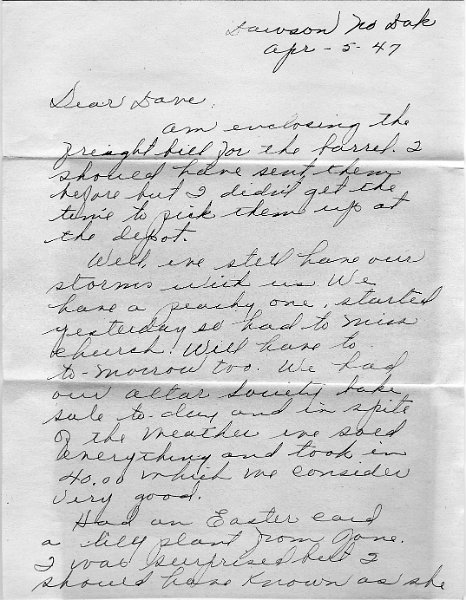 Dawson No Dak
Apr - 5 - 47
Dear Dave,
Am enclosing the
freight bill for the barrel. I
should have sent them
before but I didn't get the
time to pick them up at
the depot.
Well, we still have our
storms with us We
have a peachy one, started
yesterday so had to miss
church. Will have to
to-morrow too. We had
our altar society bake
sale to-day and in spite
of the weather we sold
everything and took in
40.00 which we consider
very good.
Had an Easter card
a lily plant from Jane.
I was surprised but I
should have known as she